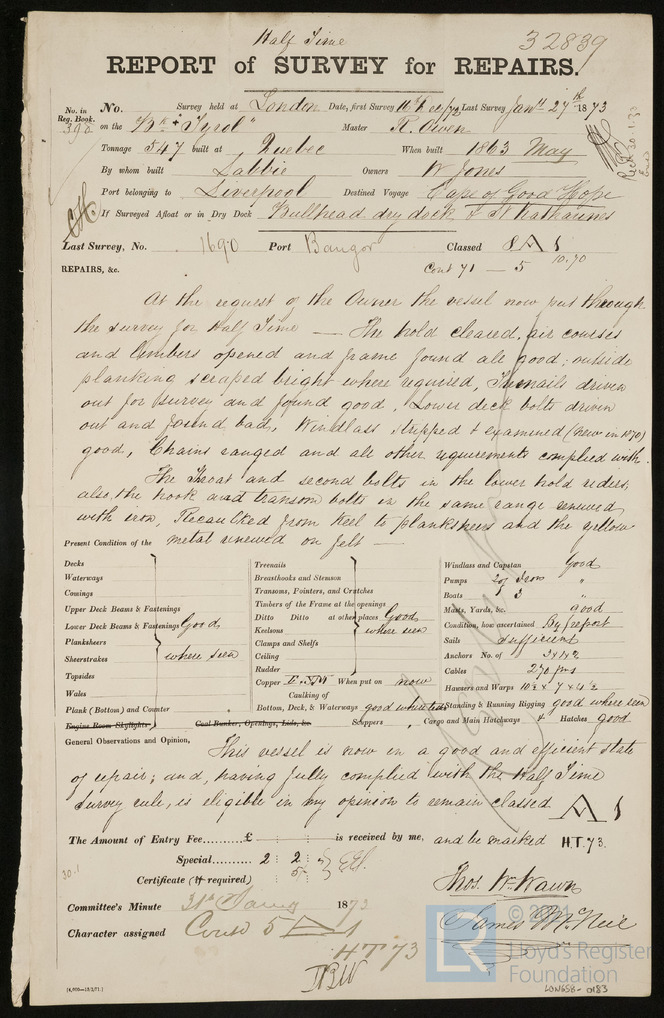 Half Time
32839
REPORT of SURVEY for REPAIRS.
No. in Reg. Book. 390
No. Survey held at London Date, first Survey 16 Dec/72 Last Survey Jany 27th 1873
on the Bk "Tyrol" Master R. Owen
Tonnage 547 built at Quebec When built 1863 May
By whom built Labbie Owners W Jones
Port belonging to Liverpool Destined Voyage Cape of Good Hope
If Surveyed Afloat or in Dry Dock Bullhead dry dock & St Kathaunes
Last Survey, No. 1690 Port Bangor Classed 8 A 1
10.70
REPAIRS, &c. Cont 71 — 5
At the request of the Owner the vessel now put through
the survey for Half Time — The hold cleared, air courses
and limbers opened and frame found all good; outside
planking scraped bright where required, Treenails driven
out for survey and found good, Lower deck bolts driven
out and found bad, Windlass stripped & examined (new in 1870)
good, Chains ranged and all other requirements complied with.
The Throat and second bolts in the lower hold riders,
also, the hook and transom bolts in the same range renewed
with iron, Recaulked from keel to planksheers and the yellow
metal renewed on felt —
Present Condition of the
Decks
Waterways
Comings
Upper Deck Beams & Fastenings
Lower Deck Beams & Fastenings Good
Planksheers
Sheerstrakes where seen
Topsides
Wales
Plank (Bottom) and Counter
Engine Room Skylights
Treenails
Breasthooks and Stemson
Transoms, Pointers, and Crutches
Timbers of the Frame at the openings
Ditto Ditto at other places Good
Keelsons where seen
Clamps and Shelfs
Ceiling
Rudder
Copper When put on now
Caulking of
Bottom, Deck, & Waterways good where seen
Coal Bunker, Openings, Lids, &c. Scuppers
Windlass and Capstan Good
Pumps 2 of Iron "
Boats 3 "
Masts, Yards, &c. good
Condition, how ascertained By report
Sails sufficient
Anchors No. of
Cables 270 fms
Hawsers and Warps 10½ x 7 x 4½
Standing & Running Rigging good where seen
Cargo and Main Hatchways & Hatches good
General Observations and Opinion,
This vessel is now in a good and efficient state
of repair; and, having fully complied with the Half Time
Survey rule, is eligible in my opinion to remain classed A 1
The Amount of Entry Fee......... £ : : is received by me, and be marked H.T. 73.
Special...... 2 : 2 :
Certificate (if required) : 5 :
30.1
Thos. Wm Wawn
James McNeil
Committee's Minute 31st Jany 1873
Character assigned Contd 5 A 1
HT 73
© 2021
LR
Lloyd's Register
Foundation
LON658-0183